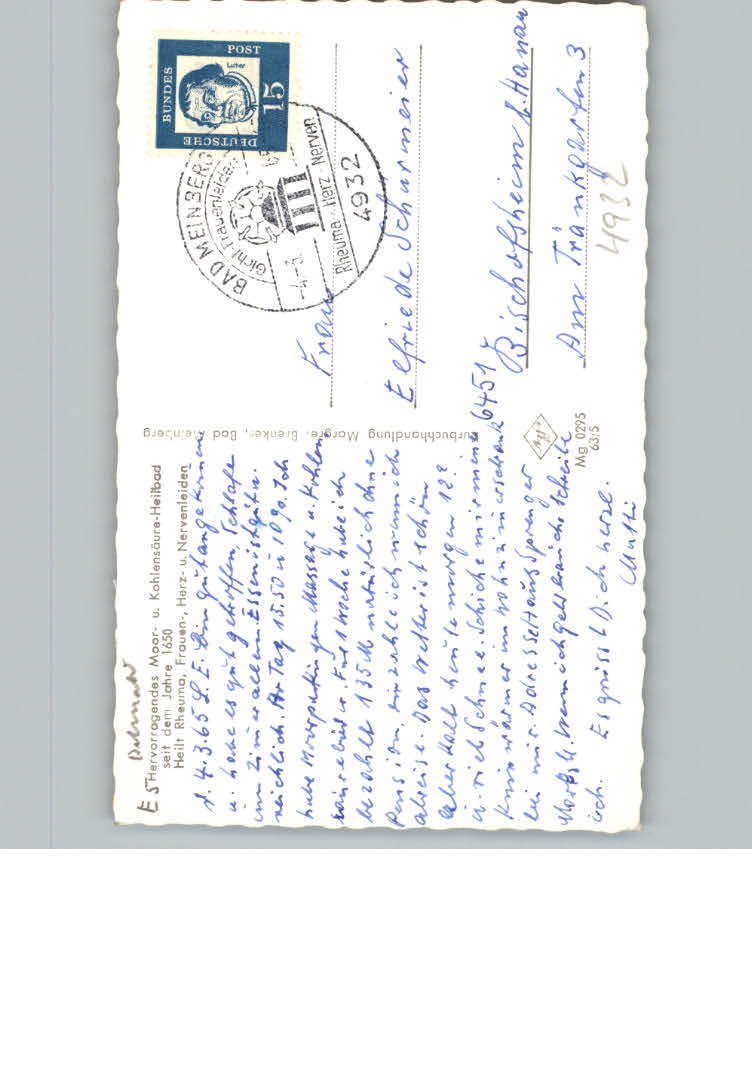 Detmold
E 5
Hervorragendes Moor- u. Kohlensäure-Heilbad
seit dem Jahre 1650
Heilt Rheuma, Frauen-, Herz- u. Nervenleiden
d. 4.3.65 L. E. Bin gut angekommen
u. habe es gut getroffen, Schlafe
im Zimmer allein. Essen ist gut u.
reichlich. Am Tag 15.50 u 10 %. Ich
habe Moorpackungen Massage u. Kohlen
säurebäd u. Für Woche habe ich
bezahlt 135 M natürlich ohne
Pension, die zahle ich wenn ich
abreise. Das Wetter ist schön
aber kalt heute morgen 12°
u. viel Schnee. Schicke mir meine
Kniewärmer im Wohnzimmerschrank
bei mir. Adresse Haus Sprenger
Wenn ich geld brauche schreibe
ich. Es grüsst Dich herzl.
Mutti
Kurbuchhandlung Margret Brenker, Bad Meinberg
Mg 0295
63/5
DEUTSCHE
BUNDES
POST
Luther
15
BAD MEINBERG
Gicht Frauenleiden
-4.-3.
Rheuma Herz Nerven
4932
Frau
Elfriede Schurmeier
6451
Bischofsheim b. Hanau
Am Tränkgarten 3
4932